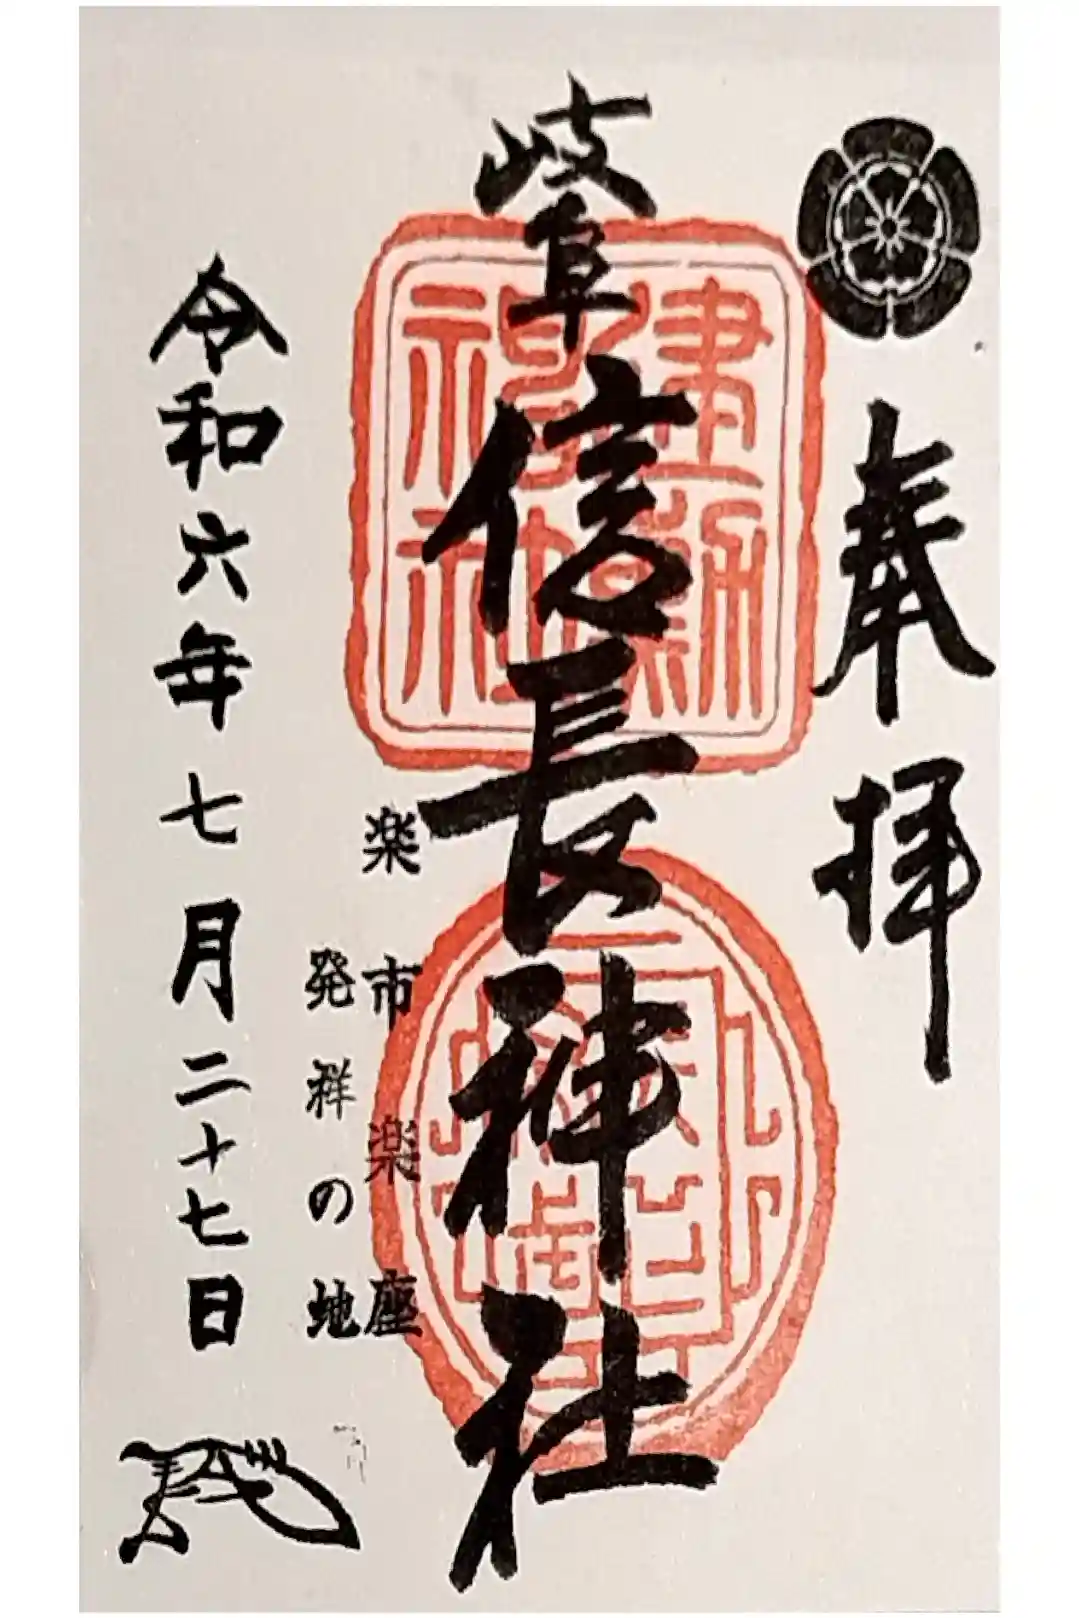 奉拝
岐阜信長神社
建勲神社
楽市楽座
発祥の地
令和六年七月二十七日